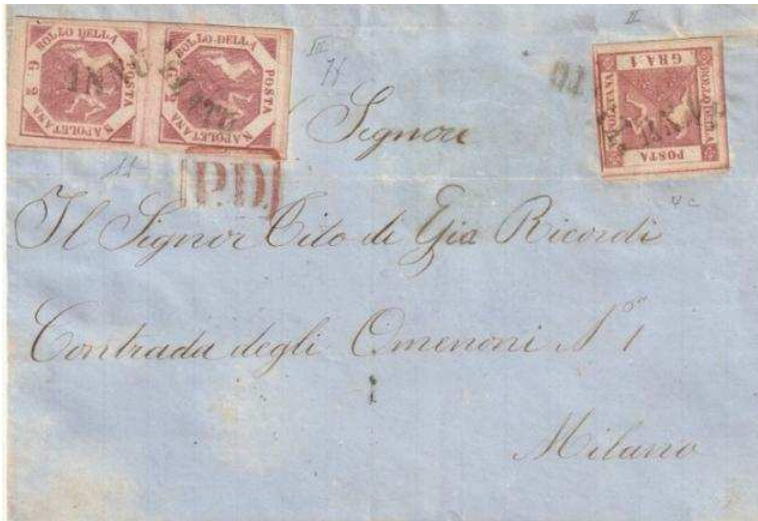 BOLLO DELLA POSTA NAPOLETANA G. 2
BOLLO DELLA POSTA NAPOLETANA G. 2
BOLLO DELLA POSTA NAPOLETANA GRA 1
ANNULLATO
ANNUL
III
II
P.D.
4c
Signore
Il Signor Tito di Gio Ricordi
Contrada degli Omenoni No 1
Milano